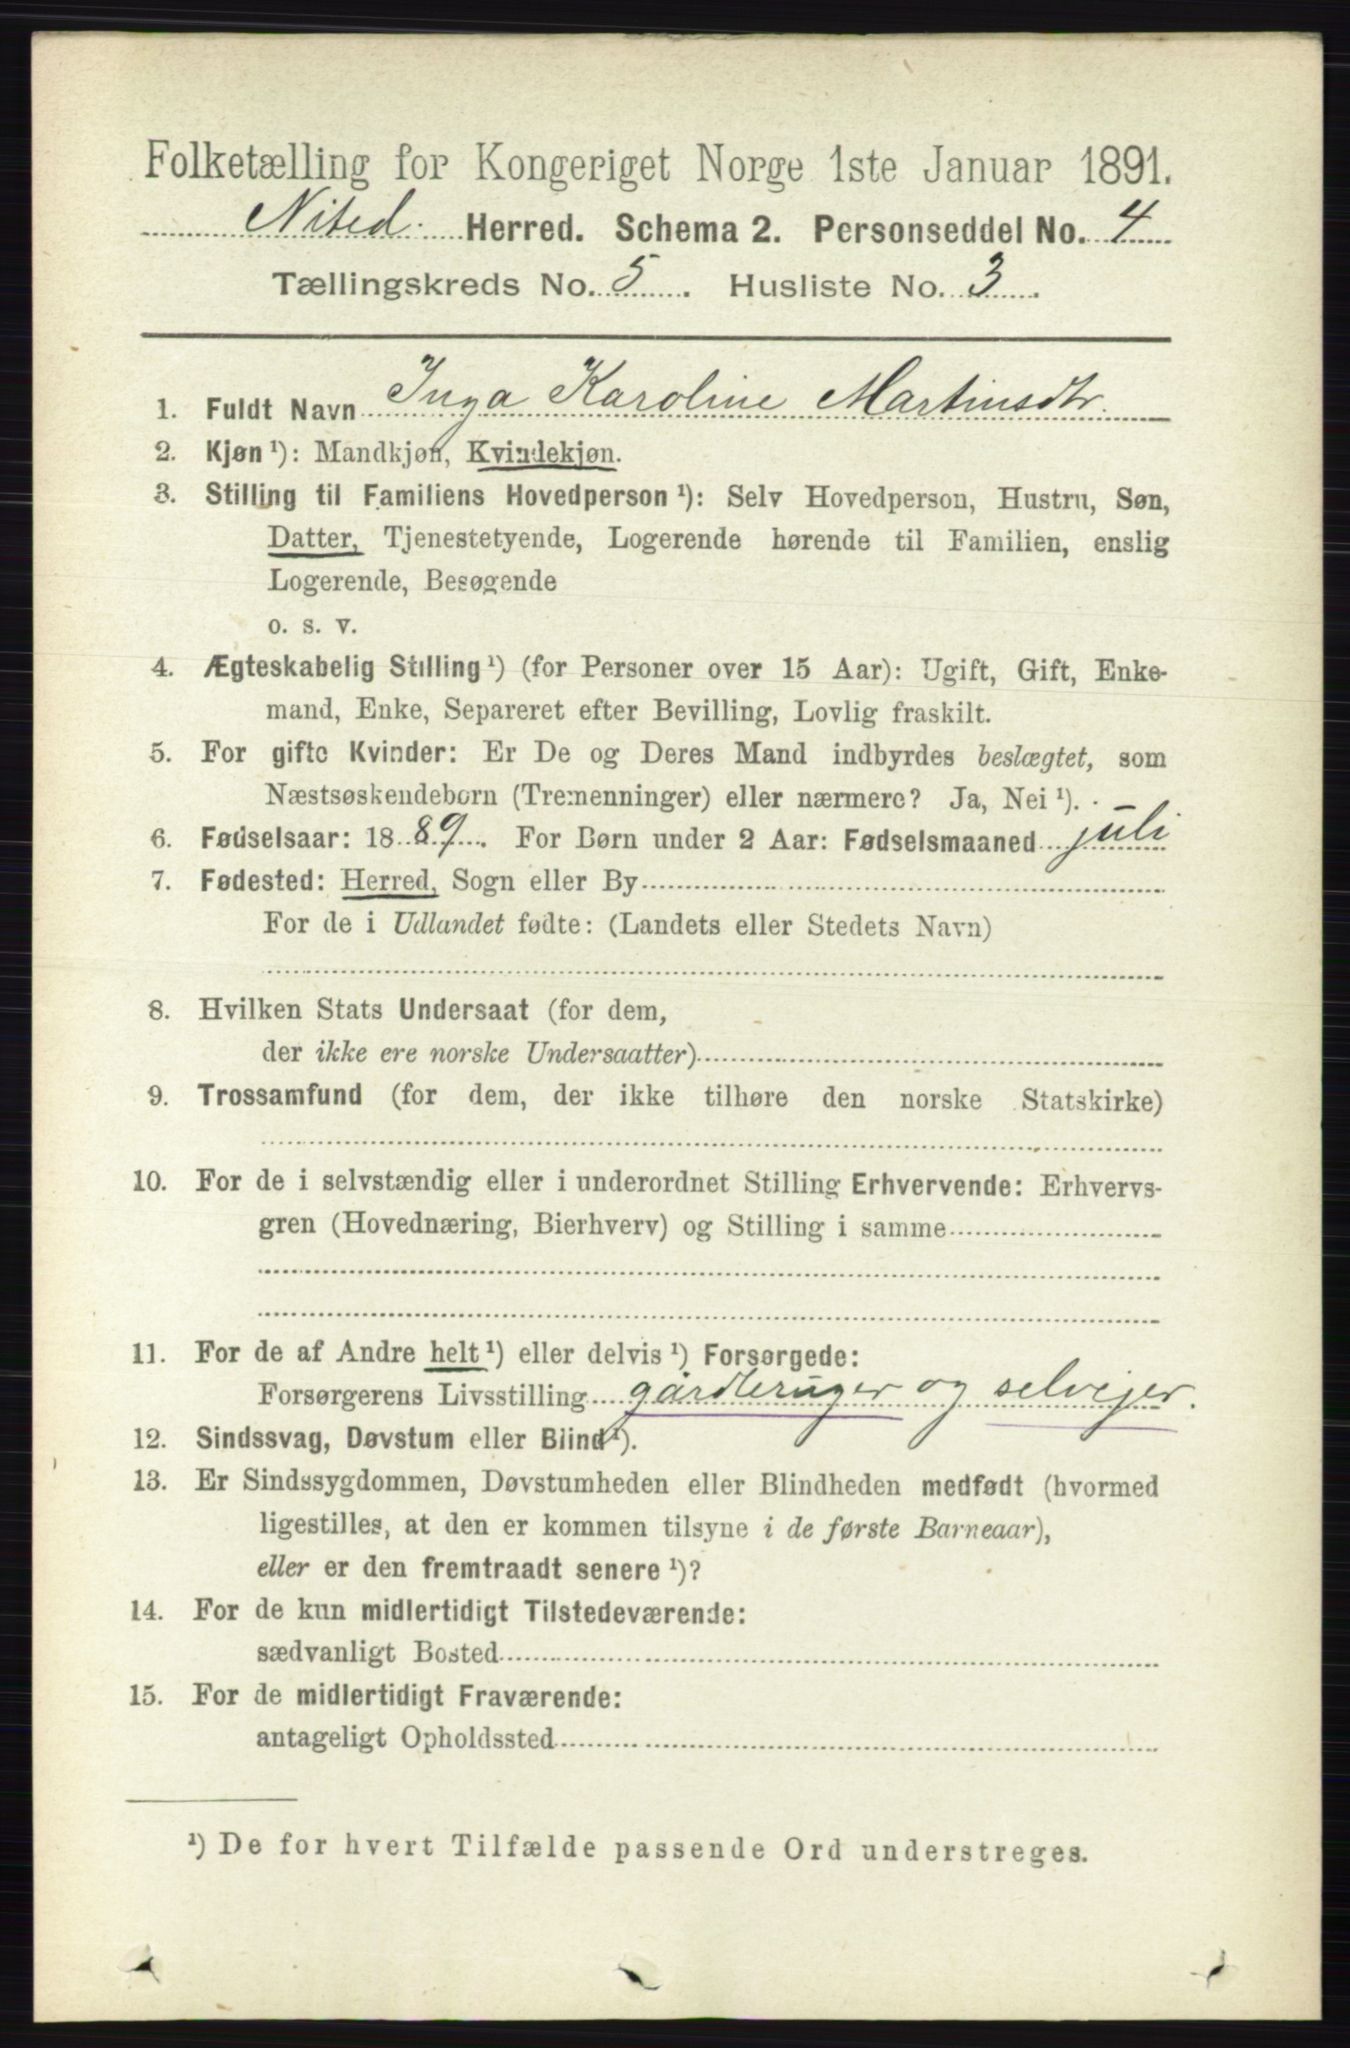 Folketælling for Kongeriget Norge 1ste Januar 1891.
Nited. Herred. Schema 2. Personseddel No. 4
Tællingskreds No. 5. Husliste No. 3.
1. Fuldt Navn Inga Karoline Martinsdtr.
2. Kjøn ¹): Mandkjøn, Kvindekjøn.
3. Stilling til Familiens Hovedperson ¹): Selv Hovedperson, Hustru, Søn,
Datter, Tjenestetyende, Logerende hørende til Familien, enslig
Logerende, Besøgende
o. s. v.
4. Ægteskabelig Stilling ¹) (for Personer over 15 Aar): Ugift, Gift, Enke-
mand, Enke, Separeret efter Bevilling, Lovlig fraskilt.
5. For gifte Kvinder: Er De og Deres Mand indbyrdes beslægtet, som
Næstsøskendebørn (Tremenninger) eller nærmere? Ja, Nei ¹).
6. Fødselsaar: 1889. For Børn under 2 Aar: Fødselsmaaned juli
7. Fødested: Herred, Sogn eller By
For de i Udlandet fødte: (Landets eller Stedets Navn)
8. Hvilken Stats Undersaat (for dem,
der ikke ere norske Undersaatter)
9. Trossamfund (for dem, der ikke tilhøre den norske Statskirke)
10. For de i selvstændig eller i underordnet Stilling Erhvervende: Erhvervs-
gren (Hovednæring, Bierhverv) og Stilling i samme
11. For de af Andre helt ¹) eller delvis ¹) Forsørgede:
Forsørgerens Livsstilling gårdbruger og selvejer.
12. Sindssvag, Døvstum eller Blind ¹).
13. Er Sindssygdommen, Døvstumheden eller Blindheden medfødt (hvormed
ligestilles, at den er kommen tilsyne i de første Barneaar),
eller er den fremtraadt senere ¹)?
14. For de kun midlertidigt Tilstedeværende:
sædvanligt Bosted
15. For de midlertidigt Fraværende:
antageligt Opholdssted
¹) De for hvert Tilfælde passende Ord understreges.